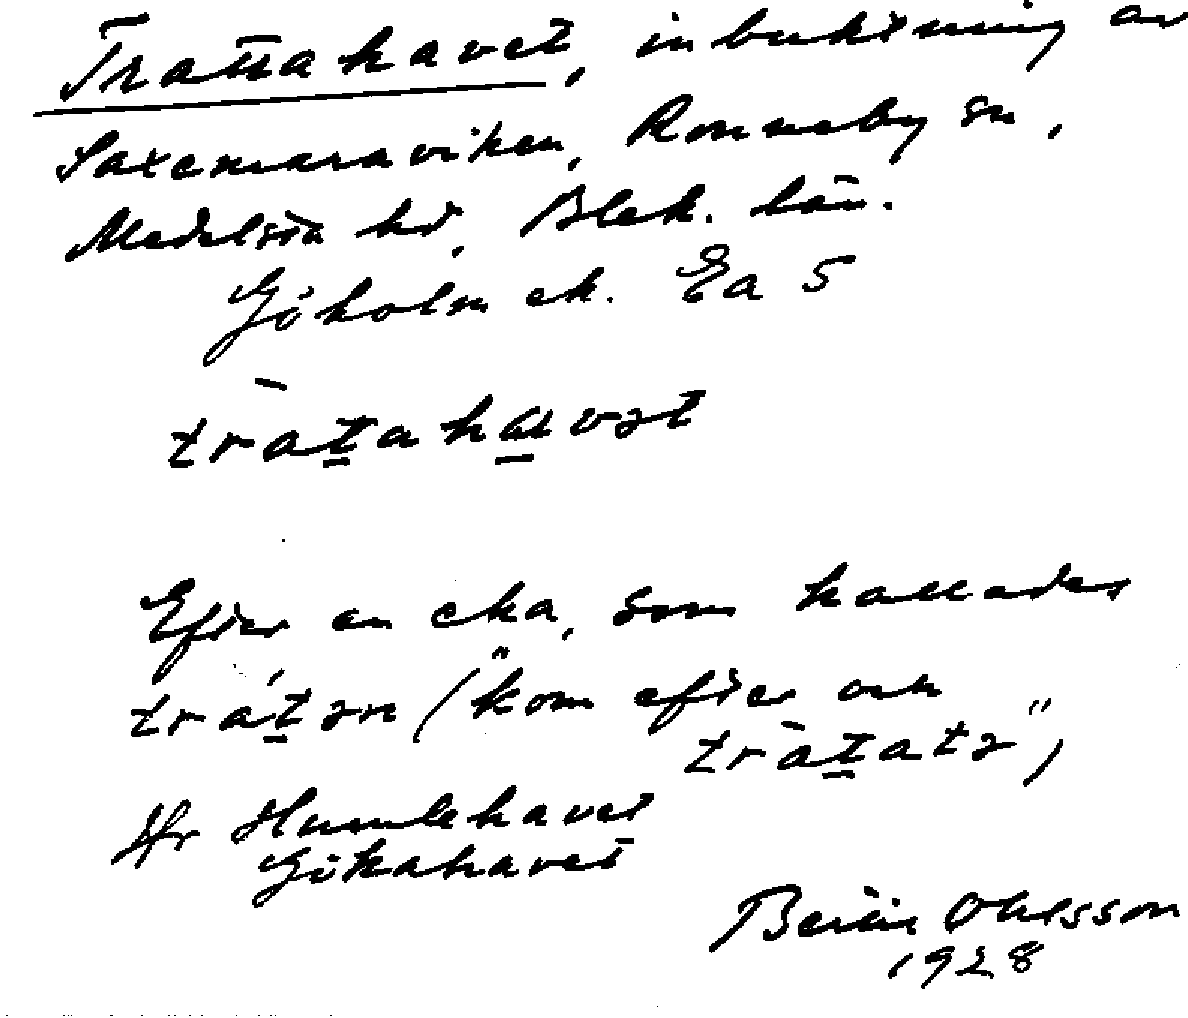 Trattahavet, inbuktning av
Saxemaraviken, Ronneby sn,
Medelsta hd, Blek. län.
Göholm ek. Ea 5
tràṯahạvət
Efter en eka, som kallades
tráṯən ("kom efter och
tràṯatə")
Jfr Humlehavet
Gökahavet
Bertil Ohlsson
1928